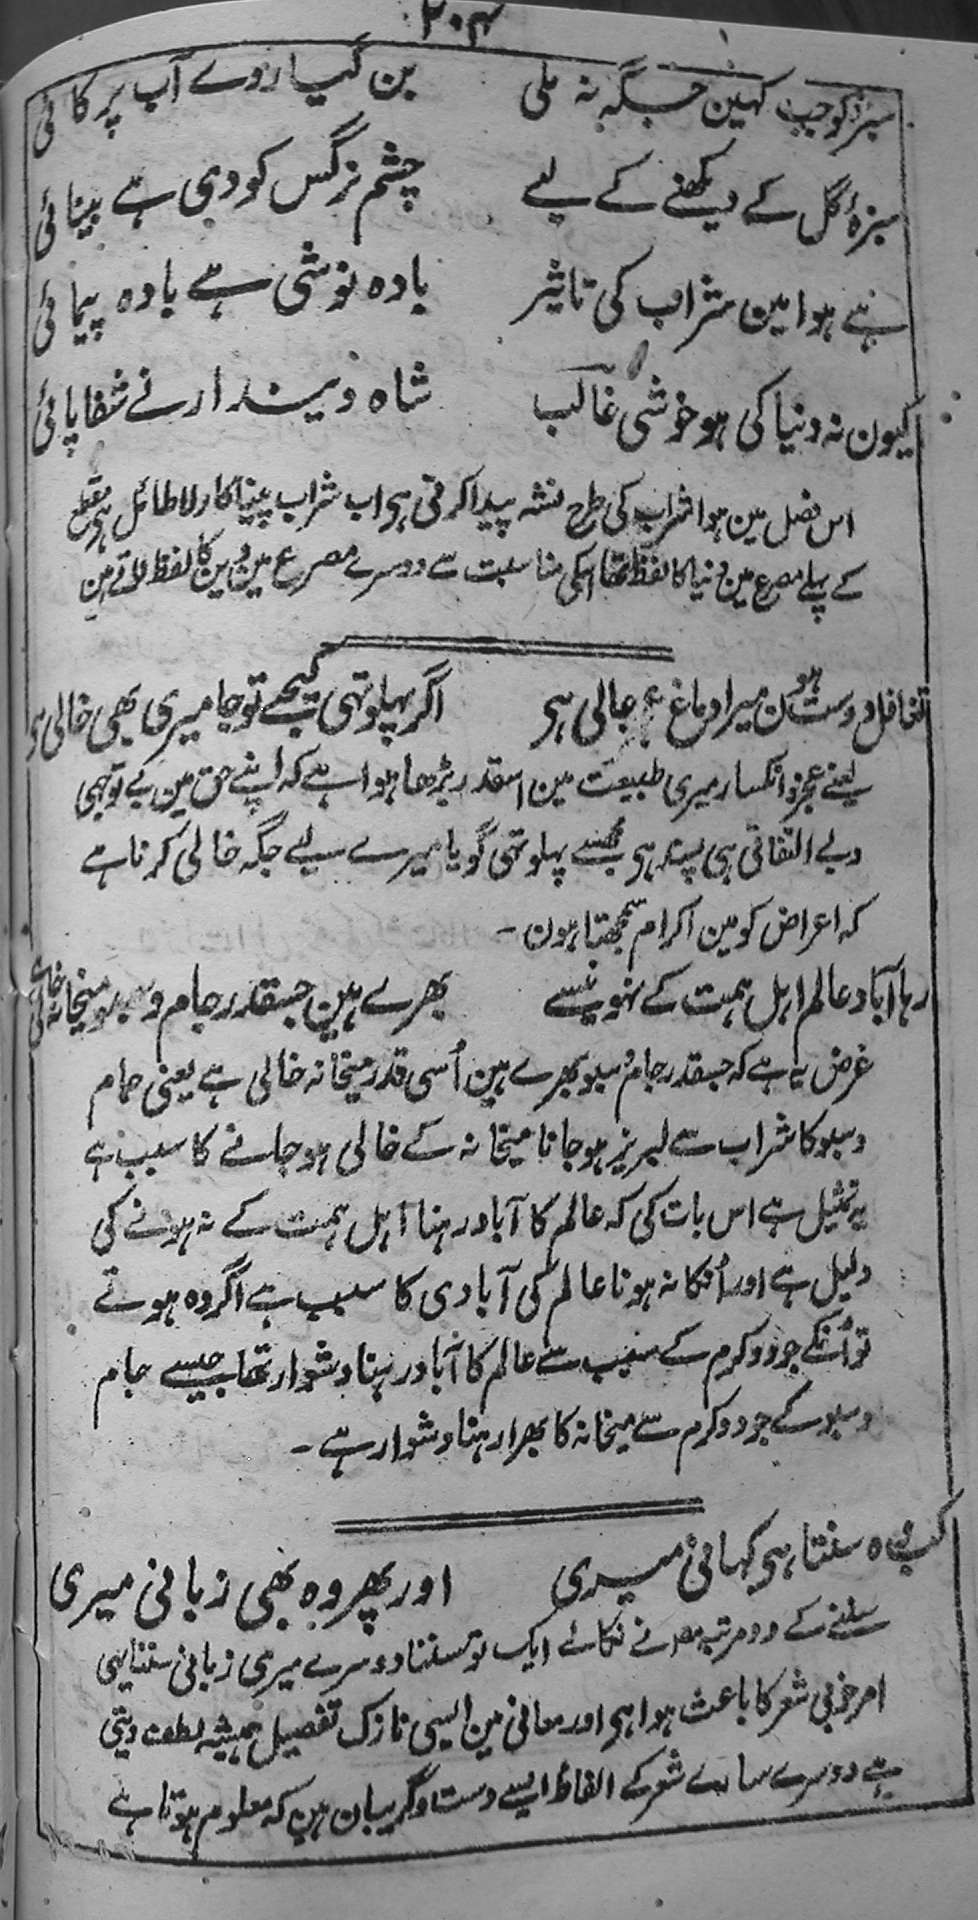 ۲۰۴
سبزہ کو جب کہین جگہ نہ ملی بن گیا روے آب پر کائی
سبزۂ گل کے دیکھنے کے لیے چشم نرگس کو دی ہے بینائی
ہے ہوا مین شراب کی تاثیر بادہ نوشی ہے بادہ پیمائی
کیون نہ دنیا کی ہو خوشی غالب شاہ دیندار نے شفا پائی
اس فصل مین ہوا شراب کی طرح نشہ پیدا کرتی ہی اب شراب پینا کار لا طائل ہی مقطع
کے پہلے مصرع مین دنیا کا لفظ تھا اسکی مناسبت سے دوسرے مصرع مین دین کا لفظ لائے ہین
تغافل دوست ہون میرا دماغ عجز عالی ہی اگر پہلو تہی کیجے تو جا میری بھی خالی ہی
یعنے عجز و انکسار میری طبیعت مین اسقدر بڑھا ہوا ہے کہ اپنے حق مین بے توجہی
و بے التفاتی ہی پسند ہی مجھسے پہلو تہی گویا میرے لیے جگہ خالی کرنا ہے
کہ اعراض کو مین اکرام سمجھتا ہون ۔
رہا آباد عالم اہل ہمت کے نہونیسے بھرے ہین جسقدر جام و سبو میخانہ خالی ہے
غرض یہ ہے کہ جسقدر جام و سبو بھرے ہین اُسی قدر میخانہ خالی ہے یعنی جام
و سبو کا شراب سے لبریز ہو جانا میخانہ کے خالی ہو جانے کا سبب ہے
یہ تمثیل ہے اس بات کی کہ عالم کا آباد رہنا اہل ہمت کے نہ ہونے کی
دلیل ہے اور اُنکا نہ ہونا عالم کی آبادی کا سبب ہے اگر وہ ہوتے
تو اُنکے جود و کرم کے سبب سے عالم کا آباد رہنا دشوار تھا جیسے جام
و سبو کے جود و کرم سے میخانہ کا بھرا رہنا دشوار ہے ۔
کب وہ سنتا ہی کہانی میری اور پھر وہ بھی زبانی میری
سننے کے دو مرتبہ مصنف نے نکالے ایک تو سننا دوسرے میری زبانی سننا یہی
امر خوبی شعر کا باعث ہوا ہی اور معانی مین ایسی نازک تفصیل ہمیشہ لطف دیتی
ہے دوسرے سارے شعر کے الفاظ ایسے دست و گریبان ہین کہ معلوم ہوتا ہے